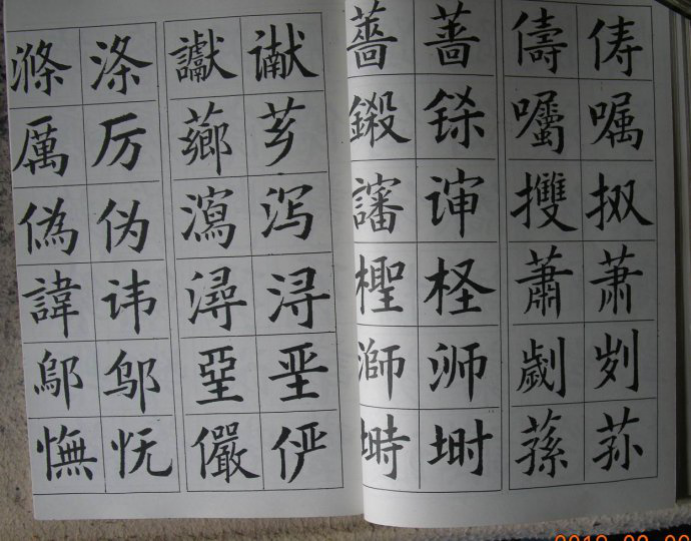 滌 涤 讞 谳
厲 厉 薌 芗
偽 伪 瀉 泻
諱 讳 潯 浔
鄔 邬 堊 垩
憮 怃 儼 俨
薔 蔷 儔 俦
鎩 铩 囑 嘱
讅 谉 㩳 㧐
檉 柽 蕭 萧
溮 浉 劌 刿
塒 埘 蓀 荪